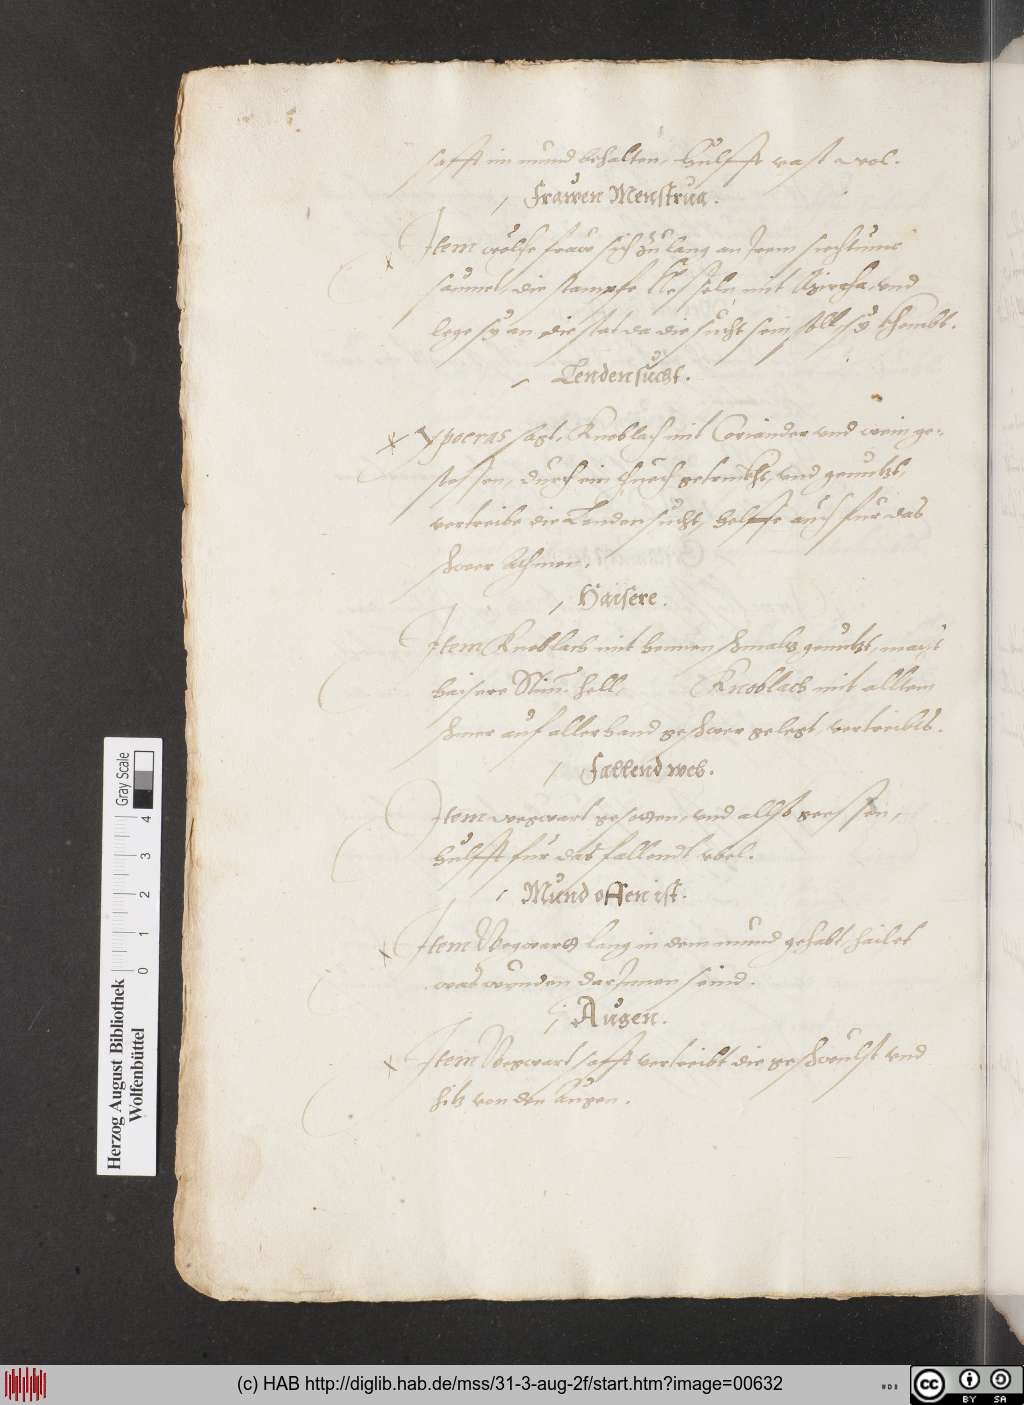 safft im mund behalten, hulfft vast wol.
Frawen Menstrua.
Item welche fraw sich zu lang an Irem siechtumb
saumet, die stampfe mit und
lege sy an die stat da die sucht sein soll, sy khombt.
Lendensucht.
Ypocras sagt, Knoblach mit Coriander und wein ge-
stossen, durch ein thuech getruckht, und genutzt,
vertreibe die Lendensucht, helffe auch für das
schwer Athmen.
Haisere.
Item Knoblach mit hennen schmaltz genutzt, macht
haisere Stim hell, Knoblach mit alltem
schmer auf allerhand geschwer gelegt, vertreibts.
Fallend web.
Item wegwart gesotten, und allso geessen,
hulfft für das fallendt ubel.
Mund offen ist.
Item Wegwart lang in dem mund gehabt, hailet
was wunden darInnen seind.
Augen.
Item Wegwart safft vertreibt die geschwulst und
hitz von den Augen.
Herzog August Bibliothek
Wolfenbüttel
0 1 2 3 4
Gray Scale
(c) HAB http://diglib.hab.de/mss/31-3-aug-2f/start.htm?image=00632
cc BY SA